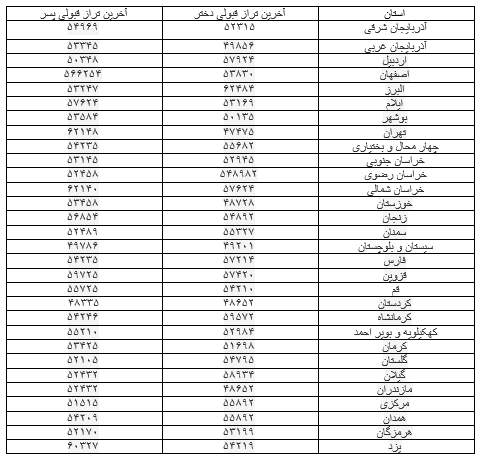 استان آخرین تراز قبولی دختر آخرین تراز قبولی پسر
آذربایجان شرقی ۵۲۳۱۵ ۵۴۹۶۹
آذربایجان غربی ۴۹۸۵۶ ۵۳۳۴۵
اردبیل ۵۷۹۲۴ ۵۰۳۴۸
اصفهان ۵۳۸۳۰ ۵۶۶۲۵۴
البرز ۶۲۴۸۴ ۵۳۲۴۷
ایلام ۵۳۱۶۹ ۵۷۶۲۴
بوشهر ۵۰۱۳۵ ۵۳۵۸۴
تهران ۴۷۴۷۵ ۶۲۱۴۸
چهار محال و بختیاری ۵۵۶۸۲ ۵۴۲۳۵
خراسان جنوبی ۵۲۹۴۵ ۵۳۱۴۵
خراسان رضوی ۵۴۸۹۸۲ ۵۲۴۵۸
خراسان شمالی ۵۷۶۲۴ ۶۲۱۴۰
خوزستان ۴۸۷۲۸ ۵۳۴۵۸
زنجان ۵۴۸۹۲ ۵۶۸۵۴
سمنان ۵۵۳۲۷ ۵۲۴۸۹
سیستان و بلوچستان ۴۹۲۰۱ ۴۹۷۸۶
فارس ۵۷۲۱۴ ۵۴۲۳۵
قزوین ۵۷۴۲۰ ۵۹۷۲۵
قم ۵۴۲۱۰ ۵۵۷۲۵
کردستان ۴۸۶۵۲ ۴۸۳۳۵
کرمانشاه ۵۹۵۷۲ ۵۴۲۴۶
کهکیلویه و بویر احمد ۵۲۹۸۴ ۵۵۲۱۰
کرمان ۵۱۶۹۸ ۵۳۴۲۵
گلستان ۵۴۷۹۵ ۵۲۱۰۵
گیلان ۵۸۹۳۴ ۵۲۴۳۲
مازندران ۴۸۶۵۲ ۵۲۴۳۲
مرکزی ۵۵۸۹۲ ۵۱۵۱۵
همدان ۵۵۸۹۲ ۵۴۲۰۹
هرمزگان ۵۳۱۹۹ ۵۲۱۷۰
یزد ۵۴۲۱۹ ۶۰۳۲۷